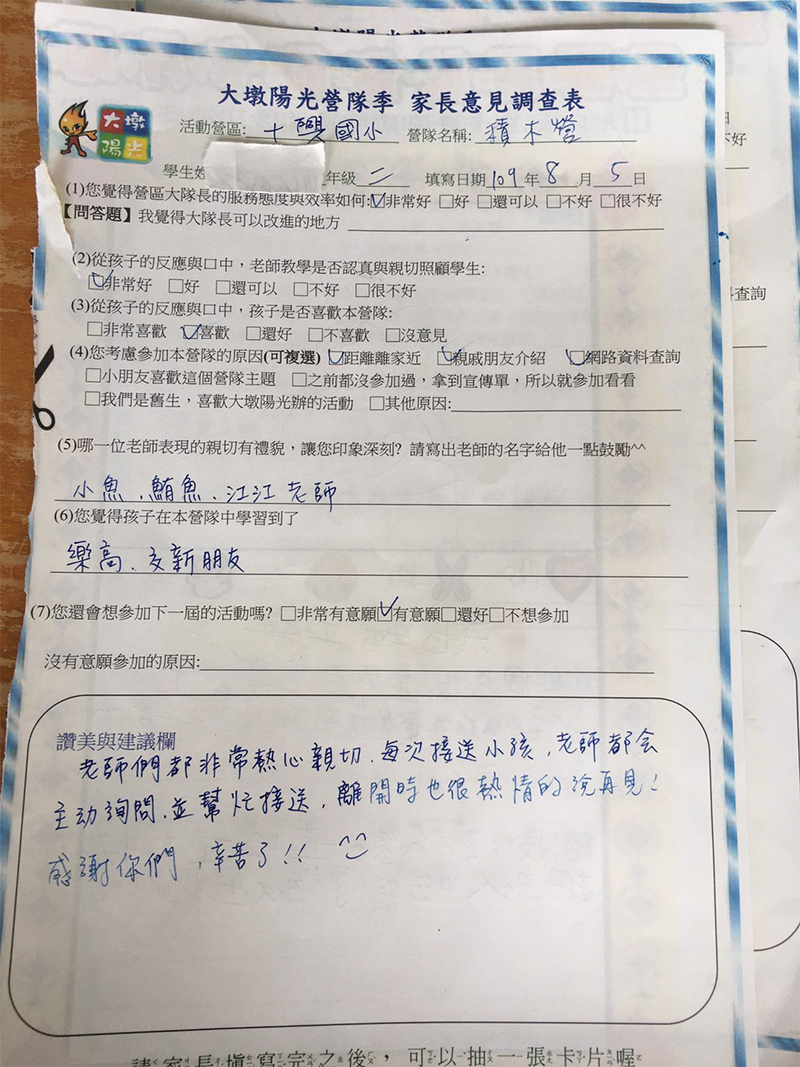 大墩陽光營隊季 家長意見調查表
大墩
陽光
活動營區: 十興國小 營隊名稱: 積木營
學生姓 年級 二 填寫日期 109 年 8 月 5 日
(1)您覺得營區大隊長的服務態度與效率如何:☑非常好 □好 □還可以 □不好 □很不好
【問答題】我覺得大隊長可以改進的地方
(2)從孩子的反應與口中，老師教學是否認真與親切照顧學生:
☑非常好 □好 □還可以 □不好 □很不好
(3)從孩子的反應與口中，孩子是否喜歡本營隊:
□非常喜歡 ☑喜歡 □還好 □不喜歡 □沒意見
(4)您考慮參加本營隊的原因(可複選) ☑距離離家近 ☑親戚朋友介紹 ☑網路資料查詢
□小朋友喜歡這個營隊主題 □之前都沒參加過，拿到宣傳單，所以就參加看看
□我們是舊生，喜歡大墩陽光辦的活動 □其他原因:
(5)哪一位老師表現的親切有禮貌，讓您印象深刻? 請寫出老師的名字給他一點鼓勵^^
小魚、鮪魚、江江老師
(6)您覺得孩子在本營隊中學習到了
樂高、交新朋友
(7)您還會想參加下一屆的活動嗎? □非常有意願☑有意願□還好□不想參加
沒有意願參加的原因:
讚美與建議欄
老師們都非常熱心親切，每次接送小孩，老師都會
主动詢問，並幫忙接送，離開時也很熱情的說再見！
感謝你們，辛苦了！！ ^^
請家長填寫完之後，可以抽一張卡片喔
不好
料查詢